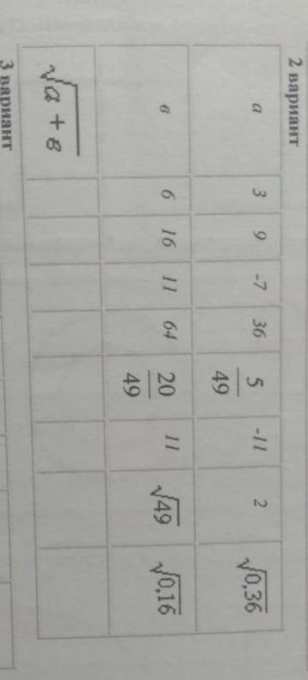 2 вариант
а 3 9 -7 36 5/49 -11 2 √0,36
в 6 16 11 64 20/49 11 √49 √0,16
√а + в
3 вариант